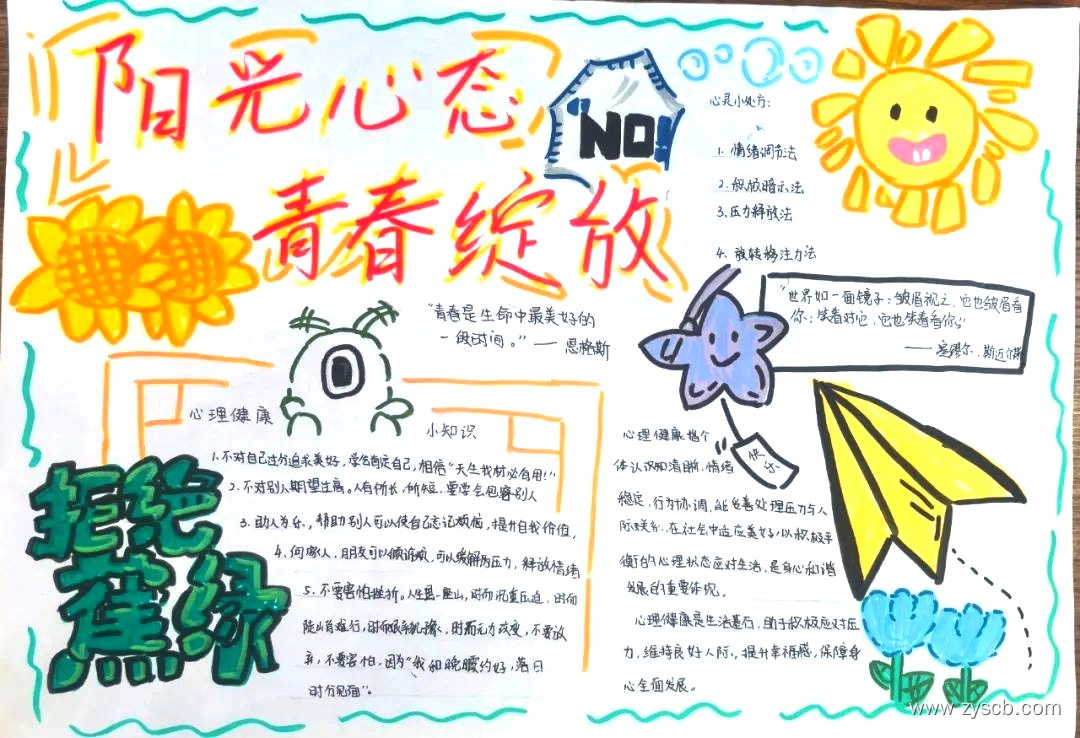 阳光心态
青春绽放
NO!
心灵小处方:
1. 情绪调节法
2. 积极暗示法
3. 压力解放法
4. 放转移注力法
"世界如一面镜子:皱眉视之,它也皱眉看
你;笑着对它,它也笑着看你。"
——塞缪尔.斯迈尔斯
"青春是生命中最美好的
一段时间。"——恩格斯
心理健康
小知识
1.不对自己过分追求美好,学会肯定自己,相信"天生我材必有用!"
2.不对别人期望过高。人有所长,所短,要学会包容别人
3. 助人为乐,帮助别人可以使自己忘记烦恼,提升自我价值,
4. 朋友可以倾诉烦,可以缓解压力,释放情绪
5. 不要害怕挫折。人生是一座山,时而沉重压迫,时而
不要放
弃,不要害怕,因为"我和晚暖约好,落日
时分见面"。
拒绝
蕉绿
快乐
心理健康指个
体认识和清晰,情绪
稳定,行为协调,能妥善处理压力与人
际关系,在社会中适应美好,以积极平
衡的心理状态应对生活,是身心和谐
发展的重要体现。
心理健康是生活基石,助于积极应对压
力,维持良好人际,提升幸福感,保障身
心全面发展。
www.zyscb.com